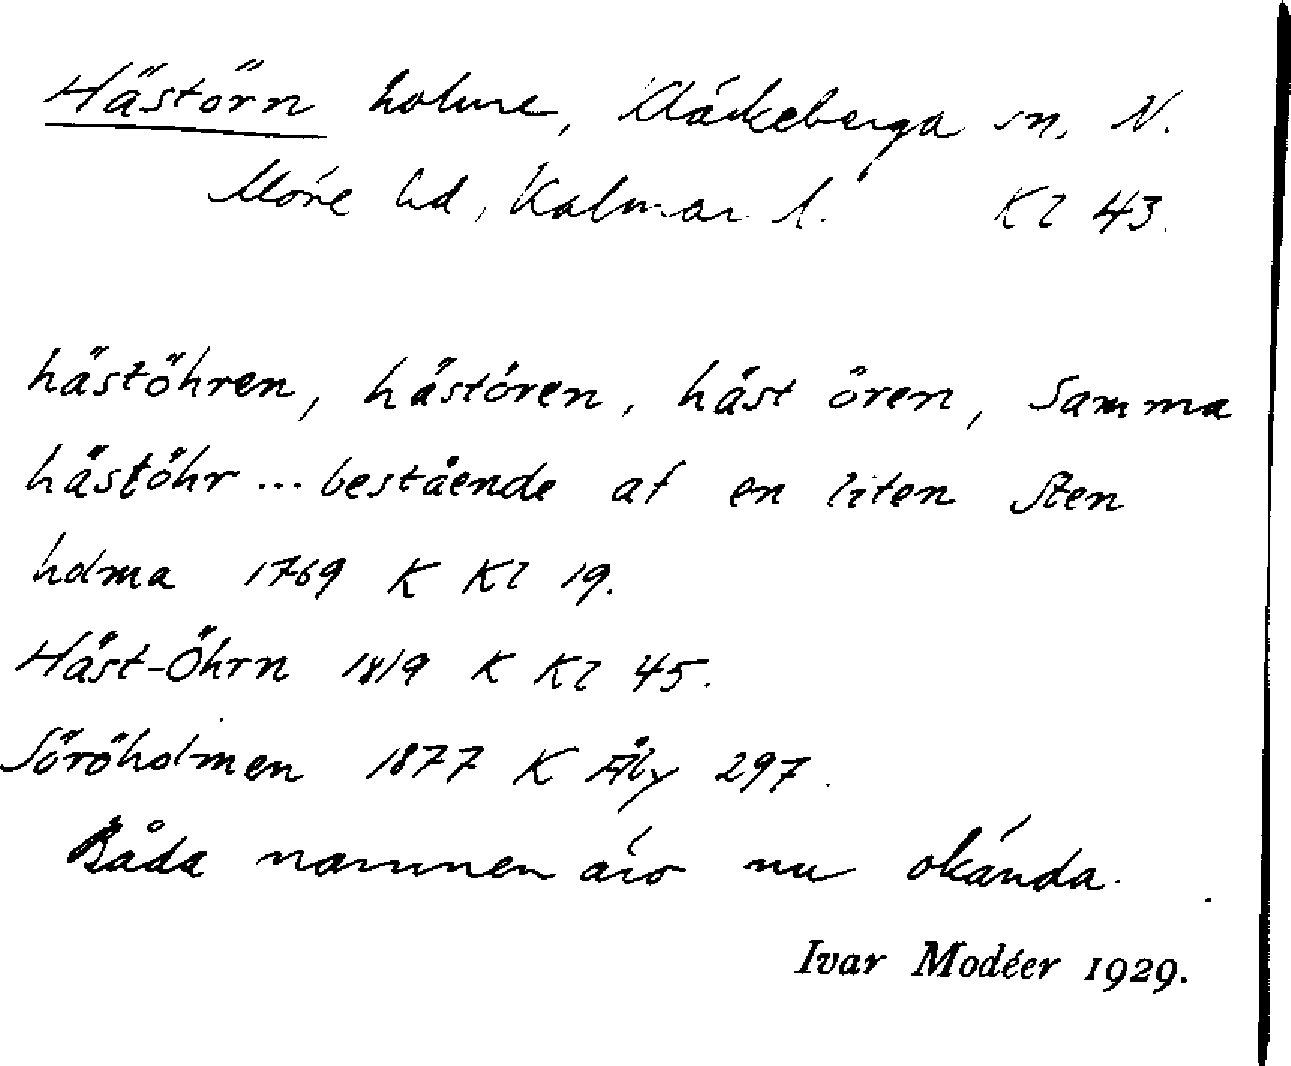 Hästörn holme, Kläckeberga sn, N.
Möre hd, Kalmar l. Kl 43.
hästöhren, hästören, häst ören, Samma
hästöhr ... bestående af en liten Sten
holma 1769 K Kl 19.
Häst-Öhrn 1819 K Kl 45.
Söröholmen 1877 K Åby 297.
Båda namnen äro nu okända.
Ivar Modéer 1929.